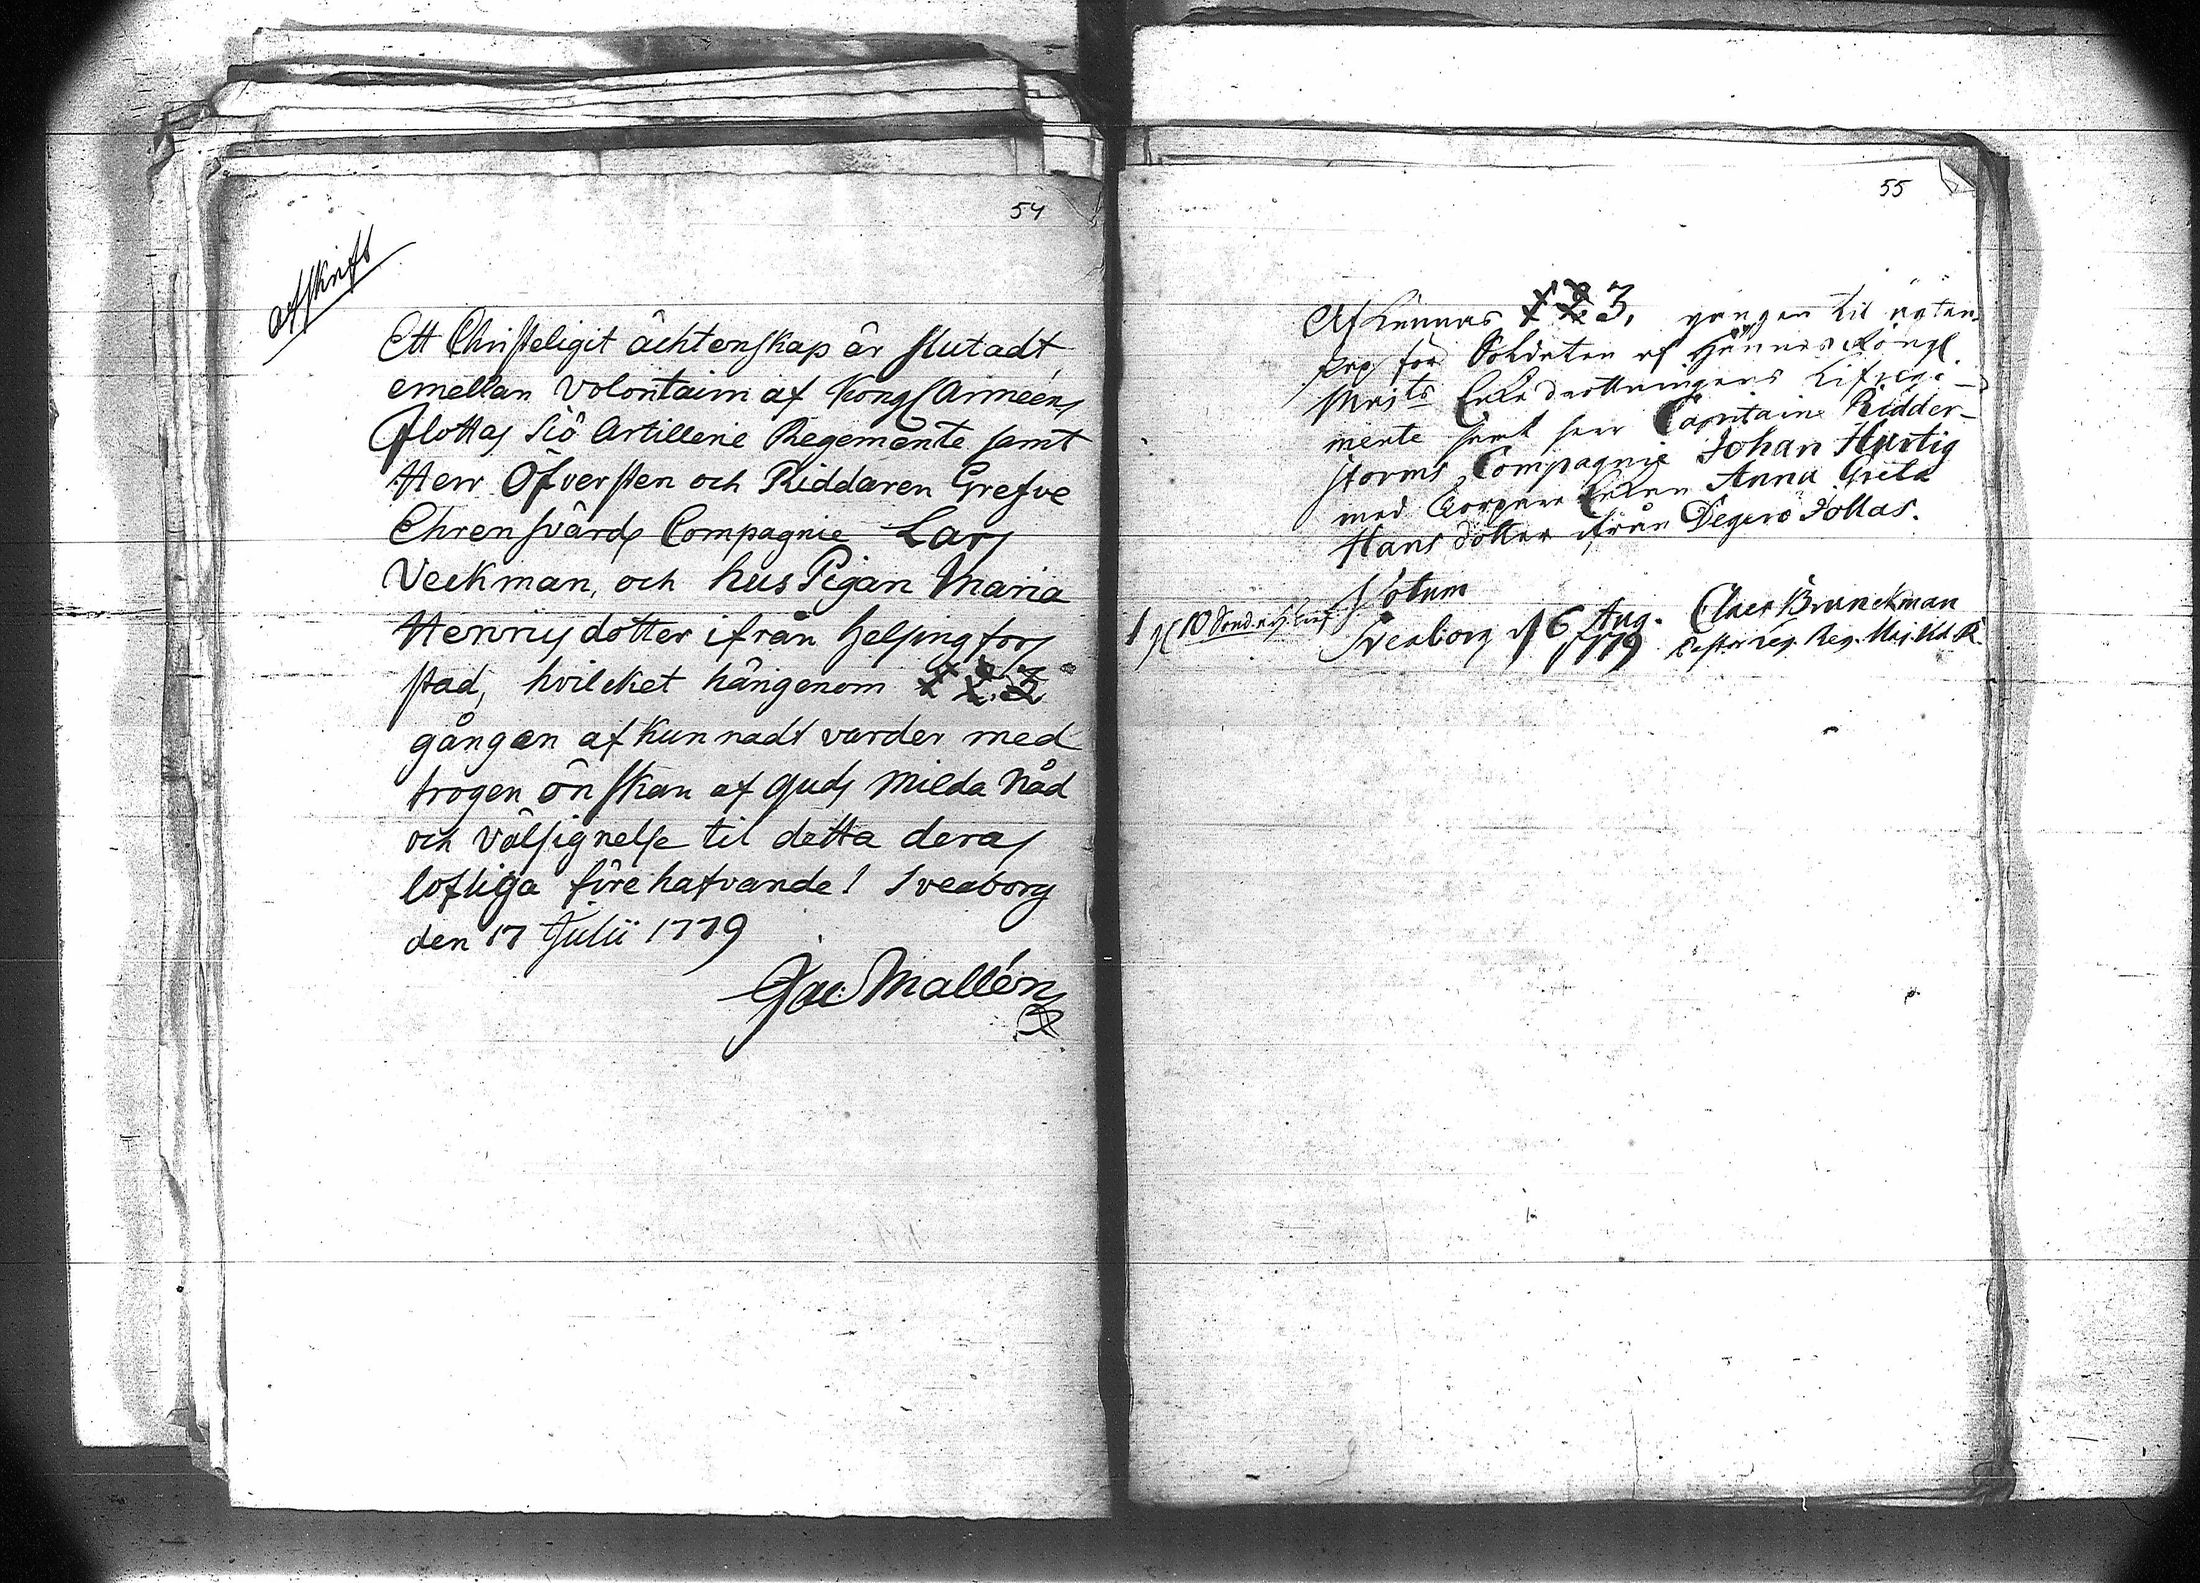 54
afskrift
Ett Christeligit ächtenskap är slutadt
emellan Volontairn af Kongl Arméens
flottas Siö Artillerie Regemente samt
Herr Öfversten och Riddaren Grefve
Ehrensvärds Compagnie Lars
Veckman, och hus Pigan Maria
Henrics dotter ifrån Helsingfors
stad, hvilcket härigenom 1 2. 3
gången afkunnadt varder med
trogen önskan af Guds Milda Nåd
och Välsignelse til detta deras
lofliga förehafvande! Sveaborg
den 17 Julii 1779
Jac Mallén
55
Afkunnas 1 2. 3, gången til äkten
skap för Soldaten af Hännes Kongl.
Maj:ts Enkedrottningens Lifrege-
mente samt herr Capitaine Ridder-
storms Compagnie Johan Hurtig
med Enkan Anna Greta
Hans dotter ifrån Degerö Jollas.
Sveaborg d 6 Aug. Claes Brunckman
1779 Reg.